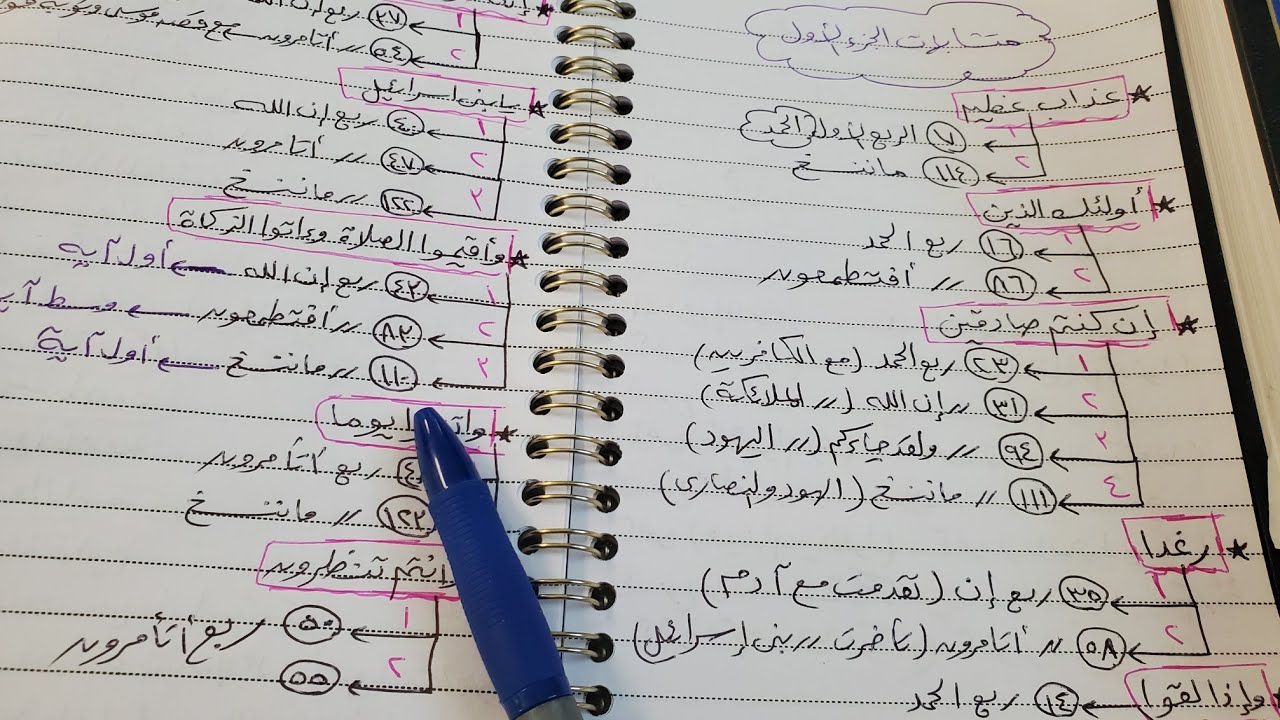 متشابهات الجزء الأول
★ عذاب عظيم
١ ← ٧ الربع الأول (الحمد)
٢ ← ١١٤ ماننسخ
★ أولئك الذين
١ ← ١٦ ربع الحمد
٢ ← ٨٦ // أفتطمعون
★ إن كنتم صادقين
١ ← ٢٣ ربع الحمد (مع الكافرين)
٢ ← ٣١ // إن الله (// الملائكة)
٣ ← ٩٤ // ولقد جاءكم (// اليهود)
٤ ← ١١١ // ماننسخ (اليهود والنصارى)
★ رغدا
١ ← ٣٥ ربع إن (تقدمت مع آدم)
٢ ← ٥٨ // أتأمرون (تأخرت // بنى إسرائيل)
وإذا لقوا ← ١٤ ربع الحمد
١ ← ٣٧ ربع إن
٢ ← ٥٤ // أتأمرون ← مع قصة موسى
★ يابنى اسرائيل
١ ← ٤٠ ربع إن الله
٢ ← ٤٧ // أتأمرون
٣ ← ١٢٢ // ماننسخ
★ وأقيموا الصلاة وءاتوا الزكاة
١ ← ٤٣ ربع إن الله ← أول آية
٢ ← ٨٣ // أفتطمعون ← وسط
٣ ← ١١٠ // ماننسخ ← أول آية
★ يوما
ربع أتأمرون
١٢٣ // ماننسخ
تنظرون
١ ← ٥٠ ربع أتأمرون
٢ ← ٥٥